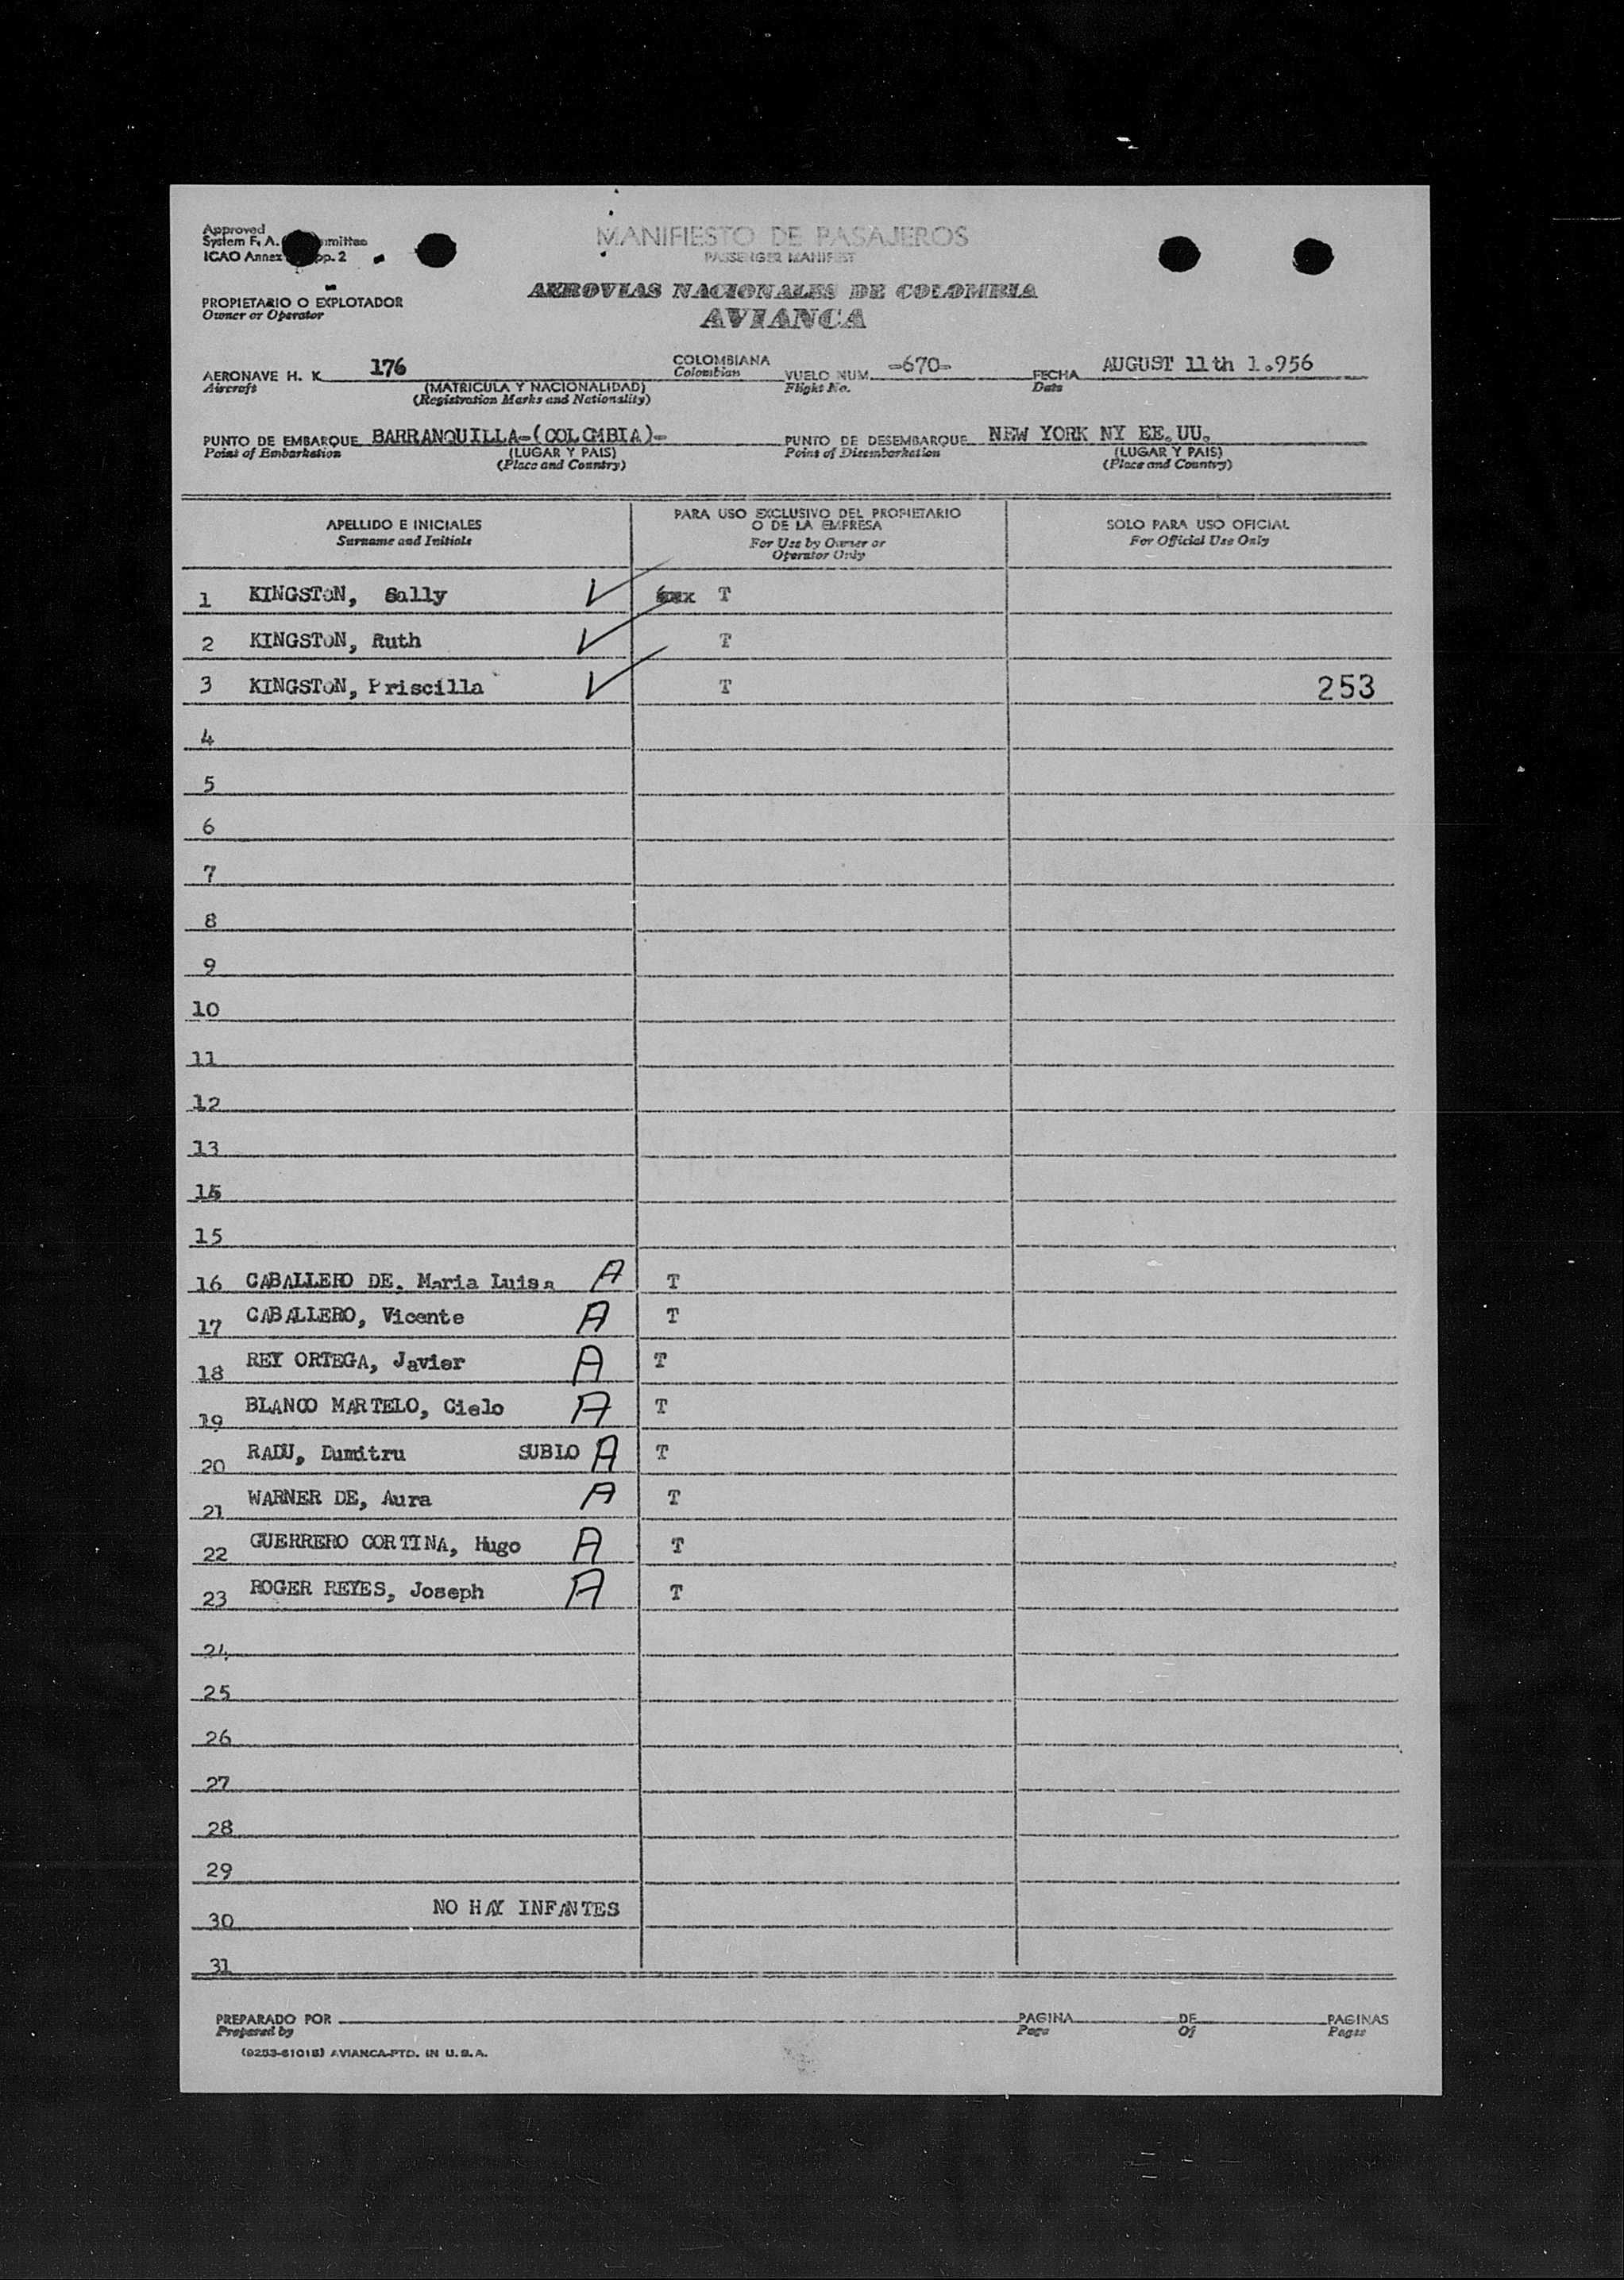 Approved
System F. A. mittee
ICAO Annex pp. 2
MANIFIESTO DE PASAJEROS
PASSENGER MANIFEST
AEROVIAS NACIONALES DE COLOMBIA
AVIANCA
PROPIETARIO O EXPLOTADOR
Owner or Operator
AERONAVE H. K. 176 COLOMBIANA VUELO NUM. -670- FECHA AUGUST 11th 1.956
Aircraft (MATRICULA Y NACIONALIDAD) Colombian Flight No. Date
(Registration Marks and Nationality)
PUNTO DE EMBARQUE BARRANQUILLA-(COLOMBIA)- PUNTO DE DESEMBARQUE NEW YORK NY EE.UU.
Point of Embarkation (LUGAR Y PAIS) Point of Disembarkation (LUGAR Y PAIS)
(Place and Country) (Place and Country)
APELLIDO E INICIALES PARA USO EXCLUSIVO DEL PROPIETARIO SOLO PARA USO OFICIAL
Surname and Initials O DE LA EMPRESA For Official Use Only
For Use by Owner or
Operator Only
1 KINGSTON, Sally T
2 KINGSTON, Ruth T
3 KINGSTON, Priscilla T 253
4
5
6
7
8
9
10
11
12
13
14
15
16 CABALLERO DE, Maria Luisa A T
17 CABALLERO, Vicente A T
18 REY ORTEGA, Javier A T
19 BLANCO MARTELO, Cielo A T
20 RADU, Dumitru SUBIO A T
21 WARNER DE, Aura A T
22 GUERRERO CORTINA, Hugo A T
23 ROGER REYES, Joseph A T
24
25
26
27
28
29
30 NO HAY INFANTES
31
PREPARADO POR PAGINA DE PAGINAS
Prepared by Page Of Pages
(9253-6101B) AVIANCA-PTD. IN U.S.A.